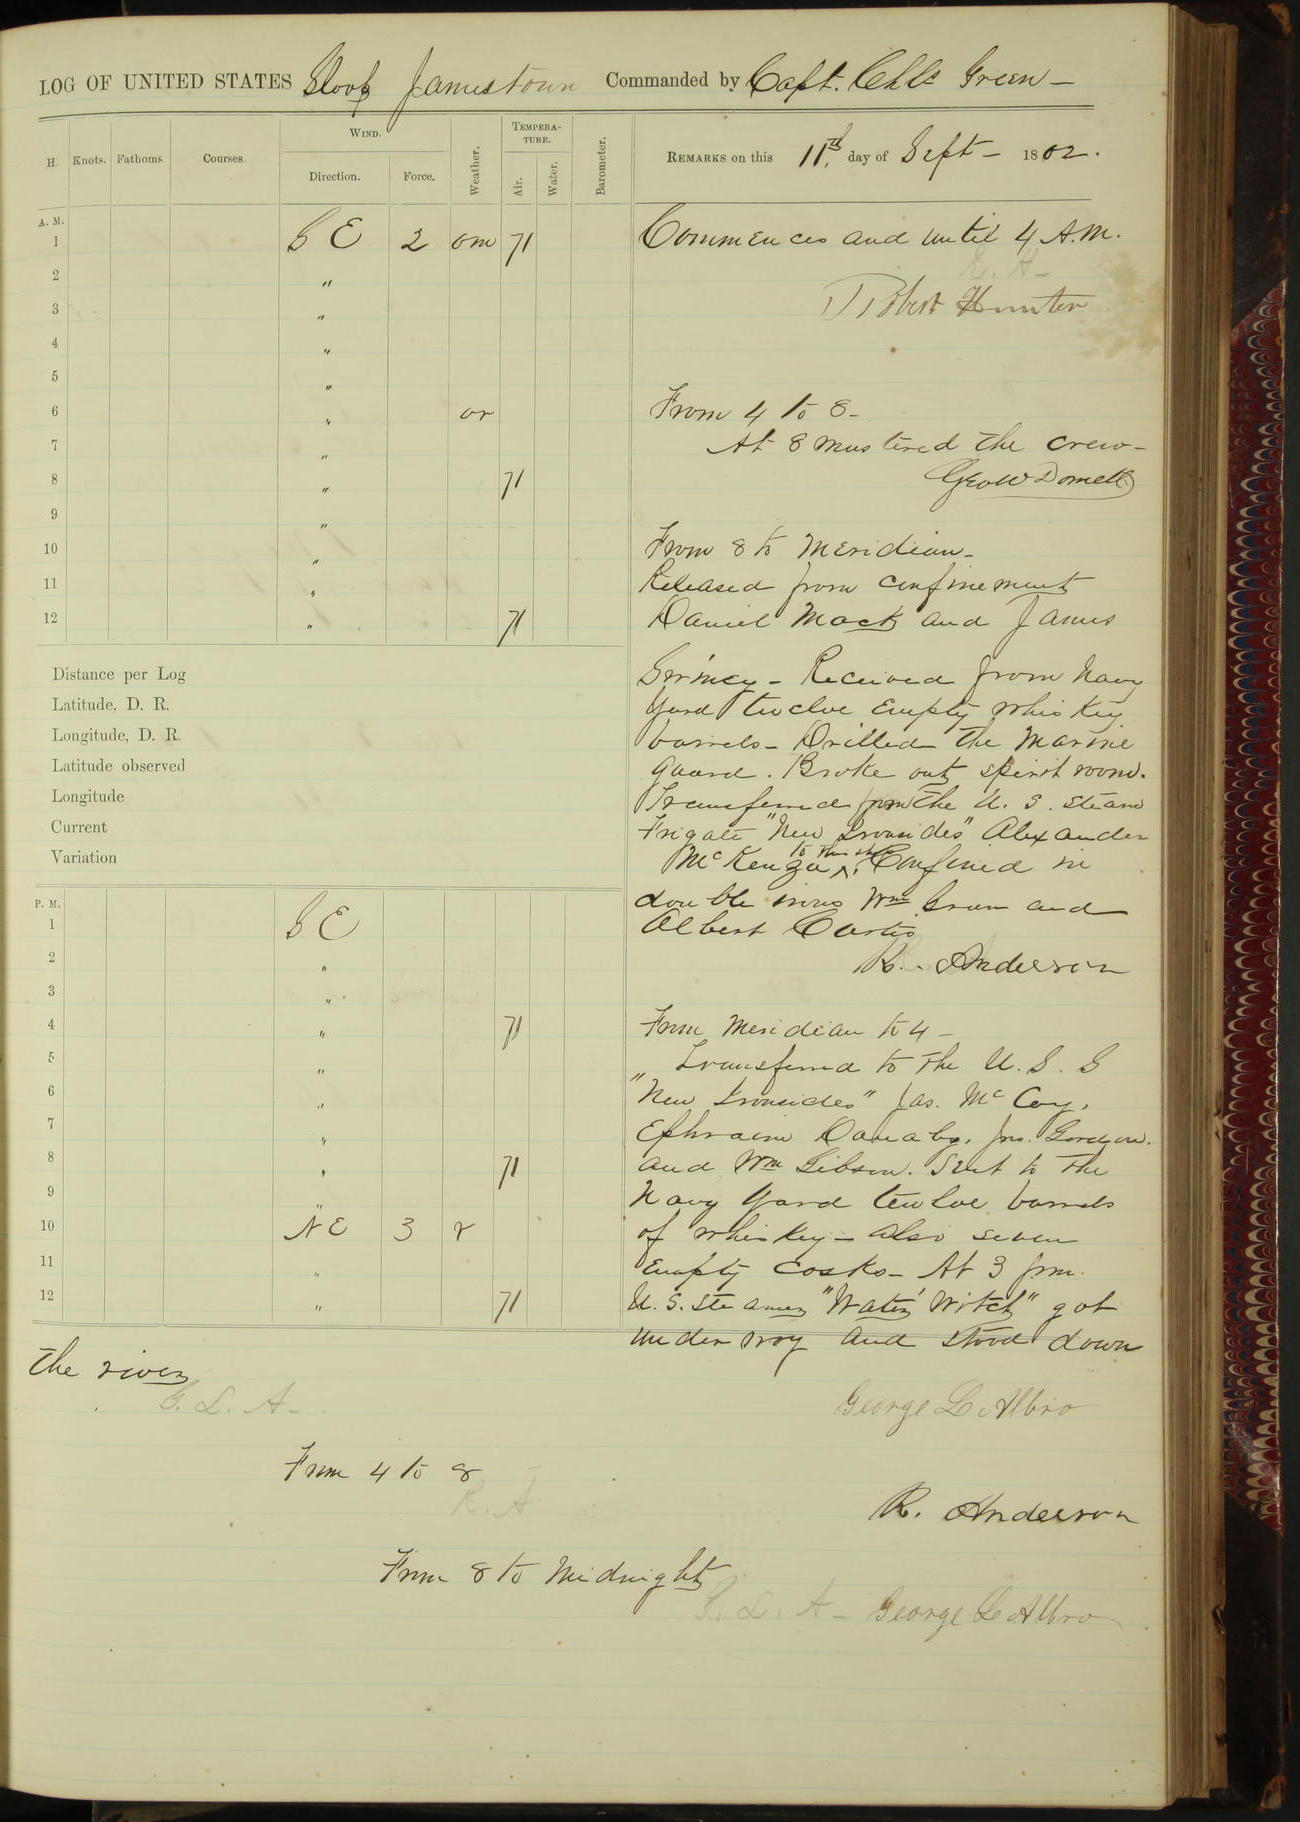 LOG OF UNITED STATES Sloop Jamestown Commanded by Capt. Chls Green -
H. Knots. Fathoms Courses. WIND. Direction. Force. Weather. TEMPERA-TURE. Air. Water. Barometer. REMARKS on this 11th. day of Sept - 1862.
A. M.
1 S E 2 om 71 Commences and until 4 A.M.
R. H -
2 "
3 " Robert Hunter
4 "
5 "
6 " or From 4 to 8 -
7 " At 8 mustered the crew -
8 " 71 Geo W Domett
9 "
10 " From 8 to Meridian -
11 " Released from confinement
12 " 71 Daniel Mack and James
Distance per Log
Latitude. D. R.
Longitude, D. R.
Latitude observed
Longitude
Current
Variation
- Received from Navy
Yard twelve Empty whiskey
barrels - Drilled the Marine
guard. Broke out spirit room.
Transferred from the U. S. Steam
Frigate "New Ironsides" Alexander
McKenzie to this ship. Confined in
double irons Wm and
Albert Curtis
R. Anderson
P. M.
1 S E
2 "
3 "
4 " 71 From Meridian to 4 -
5 " Transferred to the U. S. S
6 " "New Ironsides" Jas. McCoy,
7 " Ephraim Jno. Gordon.
8 " 71 and Wm Gibson. Sent to the
9 " Navy Yard twelve barrels
10 N E 3 r of whiskey - also seven
11 " Empty casks - At 3 pm.
12 " 71 U. S. Steamer "Water Witch" got
under way and stood down
the river
G. L. A - George L Albro
From 4 to 8
R. A
R. Anderson
From 8 to Midnight
G. L. A - George L Albro